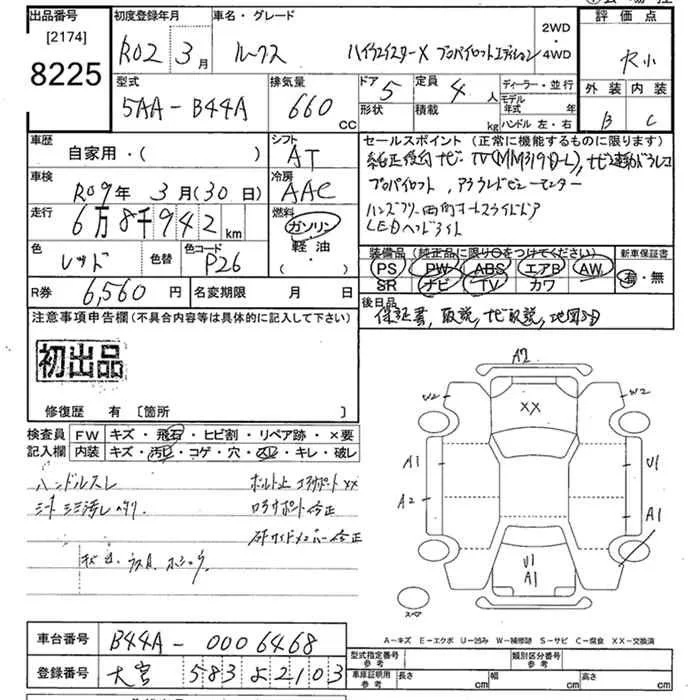 出品番号 初度登録年月 車名・グレード 2WD・4WD 評価点
[2174]
8225
R02年3月 ルークス ハイウェイスターX プロパイロットエディション R小
型式 排気量 ドア 定員 ディーラー・並行 外装 内装
5AA-B44A 660cc 5 4人 モデル年式 年
形状 積載 kg ハンドル 左・右 B C
車歴 自家用・( ) シフト AT
セールスポイント(正常に機能するものに限ります)
純正後付ナビTV(MM319D-L), ナビ連動ドラレコ
プロパイロット, アラウンドビューモニター
ハンズフリー両側オートスライドドア
LEDヘッドライト
車検 R09年3月(30日) 冷房 AAC
走行 6万8千942km 燃料 ガソリン・軽油・( )
色 レッド 色替 色コード P26
装備品(純正品に限り○をつけてください) 新車保証書
PS PW ABS エアB AW 有・無
SR ナビ TV カワ
R券 6,560円 名変期限 月 日
後日品 保証書, 取説, ナビ取説, 地図SD
注意事項申告欄(不具合内容等は具体的に記入して下さい)
初出品
修復歴 有 [箇所 ]
検査員記入欄 FW キズ・飛石・ヒビ割・リペア跡・×要
内装 キズ・汚レ・コゲ・穴・スレ・キレ・破レ
ハンドルスレ
シート シミ汚レ
ボルト止 コアサポートXX
ロアサポート修正
サイドメンバー修正
A2
W2 W2
XX
A1 U1
A2 A1
U1
A1
スペア
A-キズ E-エクボ U-凹み W-補修跡 S-サビ C-腐食 XX-交換済
車台番号 B44A-0006468
登録番号 大宮583よ2103
型式指定番号 参考 類別区分番号 参考
車庫証明用 参考 長さ cm 幅 cm 高さ cm